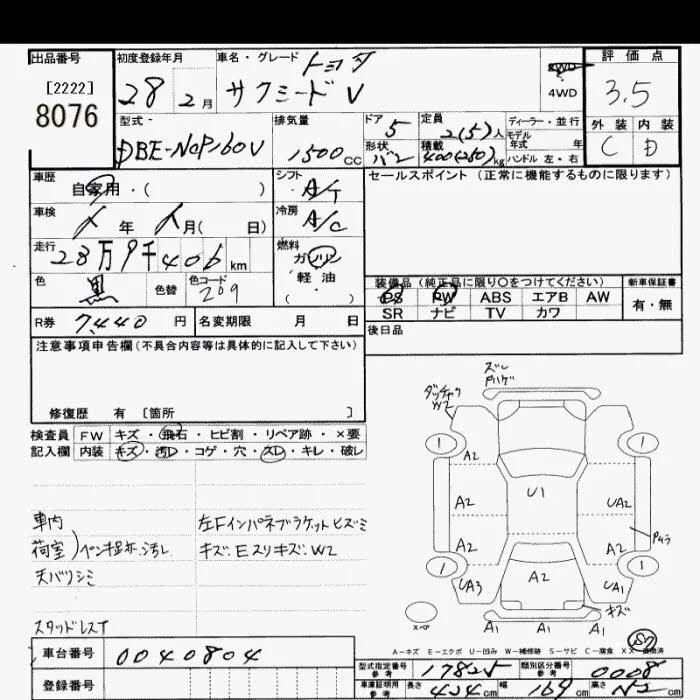 出品番号 初度登録年月 車名・グレード トヨタ 評価点
[2222] 28 2月 サクシード V 2WD 3.5
8076 4WD
型式 排気量 ドア 定員 ディーラー・並行 外装 内装
DBE-NCP160V 1500cc 5 2(5)人 モデル年式 年 C D
形状 バン 積載 400(250)kg ハンドル 左・右
車歴 シフト セールスポイント (正常に機能するものに限ります)
自家用・( ) A/T
車検 冷房
年 月( 日) A/C
走行 燃料
28万9千406km ガソリン
色 黒 色替 色コード 209 軽油
( )
装備品(純正品に限り○をつけてください) 新車保証書
PS PW ABS エアB AW 有・無
SR ナビ TV カワ
R券 7,440円 名変期限 月 日
後日品
注意事項申告欄(不具合内容等は具体的に記入して下さい)
修復歴 有 [箇所 ]
検査員 FW キズ・飛石・ヒビ割・リペア跡・×要
記入欄 内装 キズ・汚D・コゲ・穴・スD・キレ・破レ
車内
荷室
天バリシミ
スタッドレス
キズ・Eスリキズ・W2
ズレ
Pハゲ
W2
1 1
A2
U1
A2 UA2
A2 A2
1 1
UA3 A2 UA1
キズ
スペア A1 A1 A1
A-キズ E-エクボ U-凹み W-補修跡 S-サビ C-腐食
車台番号 0040804
登録番号
型式指定番号 参考 17825 類別区分番号 参考 0008
車庫証明用 参考 長さ 424cm 幅 169cm 高さ cm